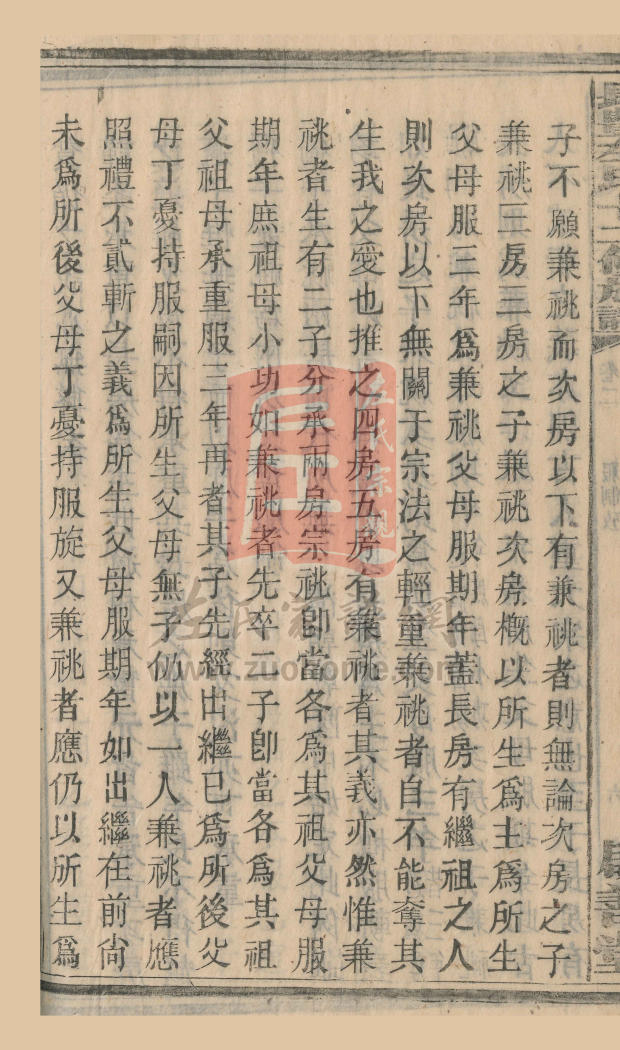 子不願兼祧而次房以下有兼祧者則無論次房之子
兼祧三房三房之子兼祧次房槪以所生爲主爲所生
父母服三年爲兼祧父母服期年蓋長房有繼祖之人
則次房以下無關于宗法之輕重兼祧者自不能奪其
生我之愛也推之四房五房有兼祧者其義亦然惟兼
祧者生有二子分承兩房宗祧卽當各爲其祖父母服
期年庶祖母小功如兼祧者先卒二子卽當各爲其祖
父祖母承重服三年再者其子先經出繼已爲所後父
母丁憂持服嗣因所生父母無子仍以一人兼祧者應
照禮不貳斬之義爲所生父母服期年如出繼在前尙
未爲所後父母丁憂持服旋又兼祧者應仍以所生爲
左氏宗親
左氏家譜網
www.zuojiahome.com